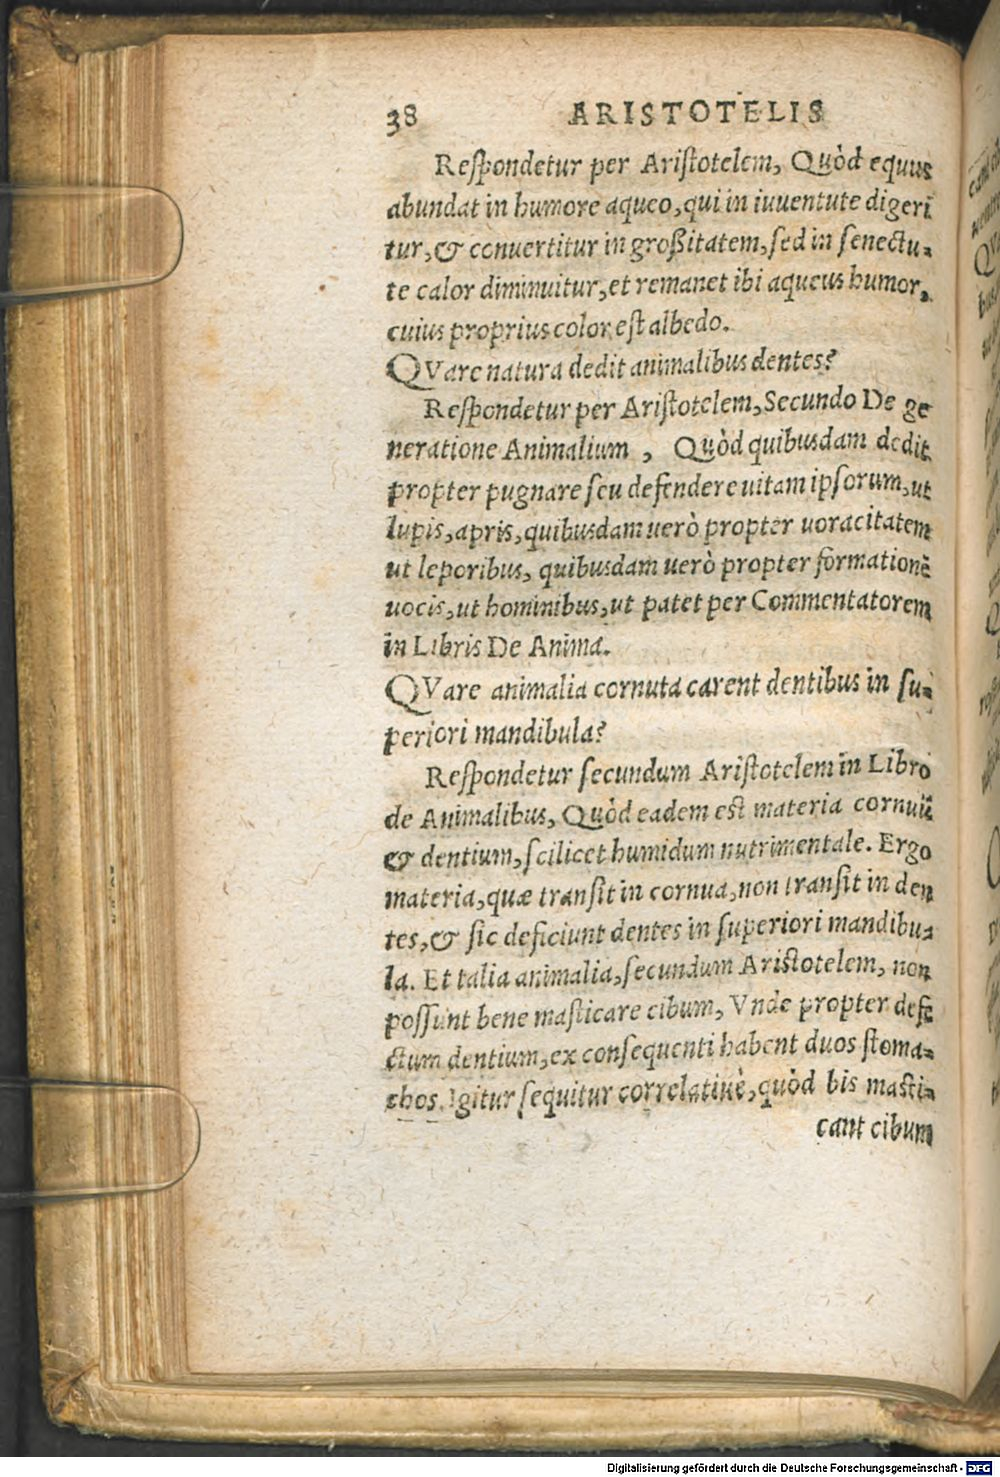 38 ARISTOTELIS
Reſpondetur per Ariſtotelem, Quòd equus
abundat in humore aqueo, qui in iuuentute digeri
tur, & conuertitur in groſsitatem, ſed in ſenectu-
te calor diminuitur, et remanet ibi aqueus humor,
cuius proprius color eſt albedo.
QVare natura dedit animalibus dentes?
Reſpondetur per Ariſtotelem, Secundo De ge
neratione Animalium, Quòd quibusdam dedit
propter pugnare ſeu defendere uitam ipſorum, ut
lupis, apris, quibusdam uerò propter uoracitatem
ut leporibus, quibusdam uerò propter formationē
uocis, ut hominibus, ut patet per Commentatorem
in Libris De Anima.
QVare animalia cornuta carent dentibus in ſu-
periori mandibula?
Reſpondetur ſecundum Ariſtotelem in Libro
de Animalibus, Quòd eadem eſt materia cornuū
& dentium, ſcilicet humidum nutrimentale. Ergo
materia, quæ tranſit in cornua, non tranſit in den
tes, & ſic deficiunt dentes in ſuperiori mandibu-
la. Et talia animalia, ſecundum Ariſtotelem, non
poſſunt bene maſticare cibum, Vnde propter defe
ctum dentium, ex conſequenti habent duos ſtoma-
chos. Igitur ſequitur correlatiuè, quòd bis maſti-
cant cibum
Digitalisierung gefördert durch die Deutsche Forschungsgemeinschaft - DFG